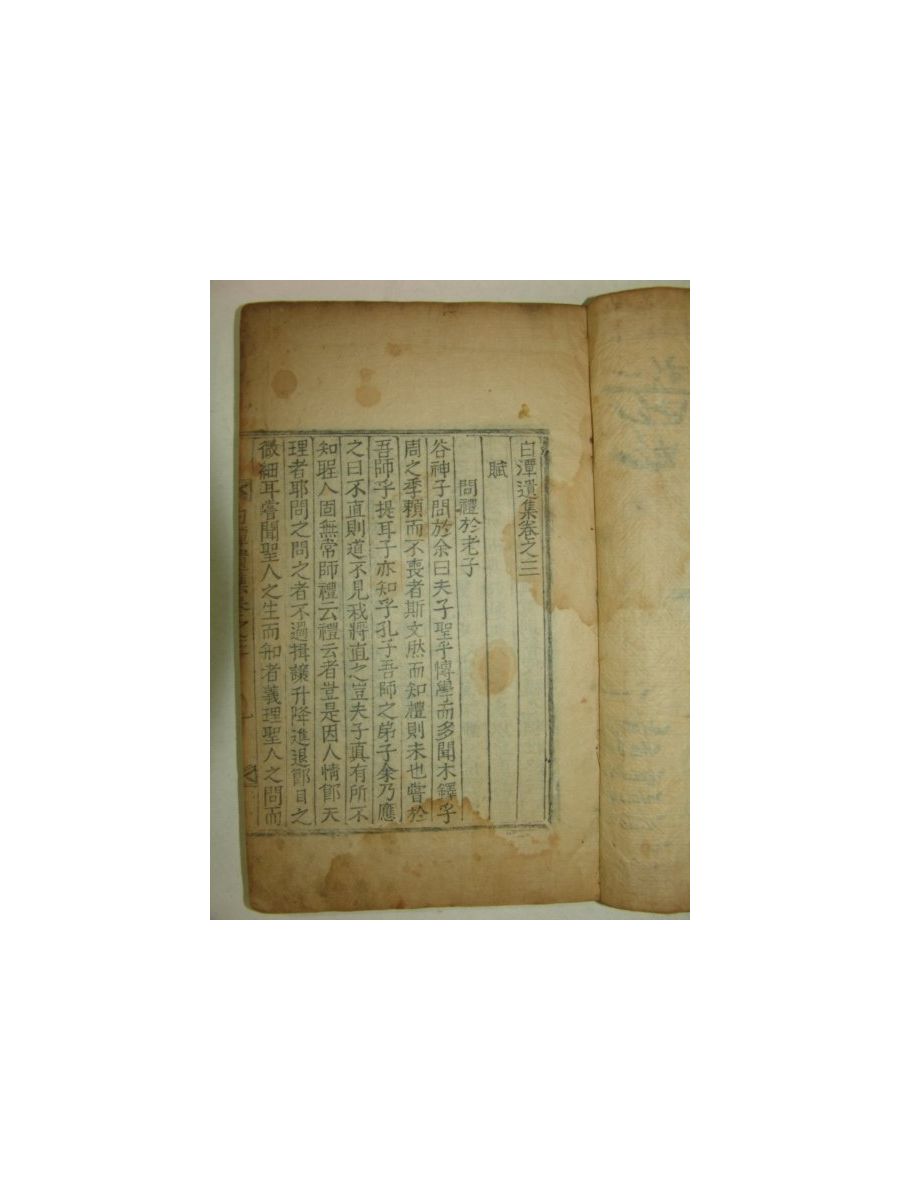 白潭遺集卷之三
賦
問禮於老子
谷神子問於余曰夫子聖乎博學而多聞木鐸乎
周之季賴而不喪者斯文然而知禮則未也嘗於
吾師乎提耳子亦知乎孔子吾師之弟子余乃應
之曰不直則道不見我將直之豈夫子眞有所不
知聖人固無常師禮云禮云者豈是因人情節天
理者耶問之問之者不過揖讓升降進退節目之
微細耳嘗聞聖人之生而知者義理聖人之問而
白潭遺集卷之三 一